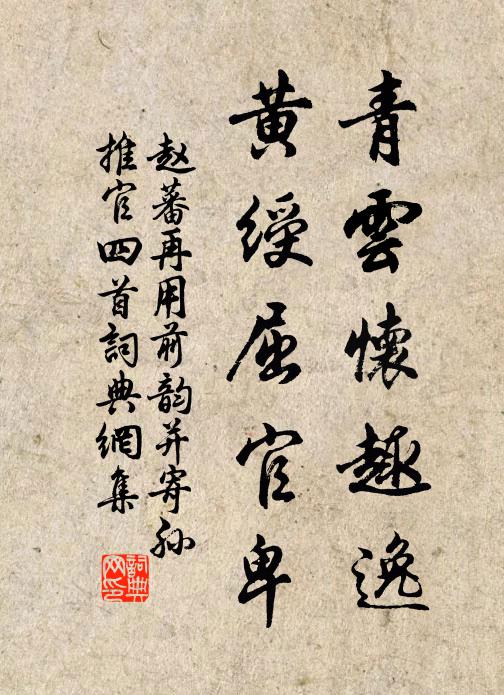 青雲懷趣逸
黄綬屈官卑
赵蕃再用前韵并寄孙
推官四首詞典網集
詞典网印